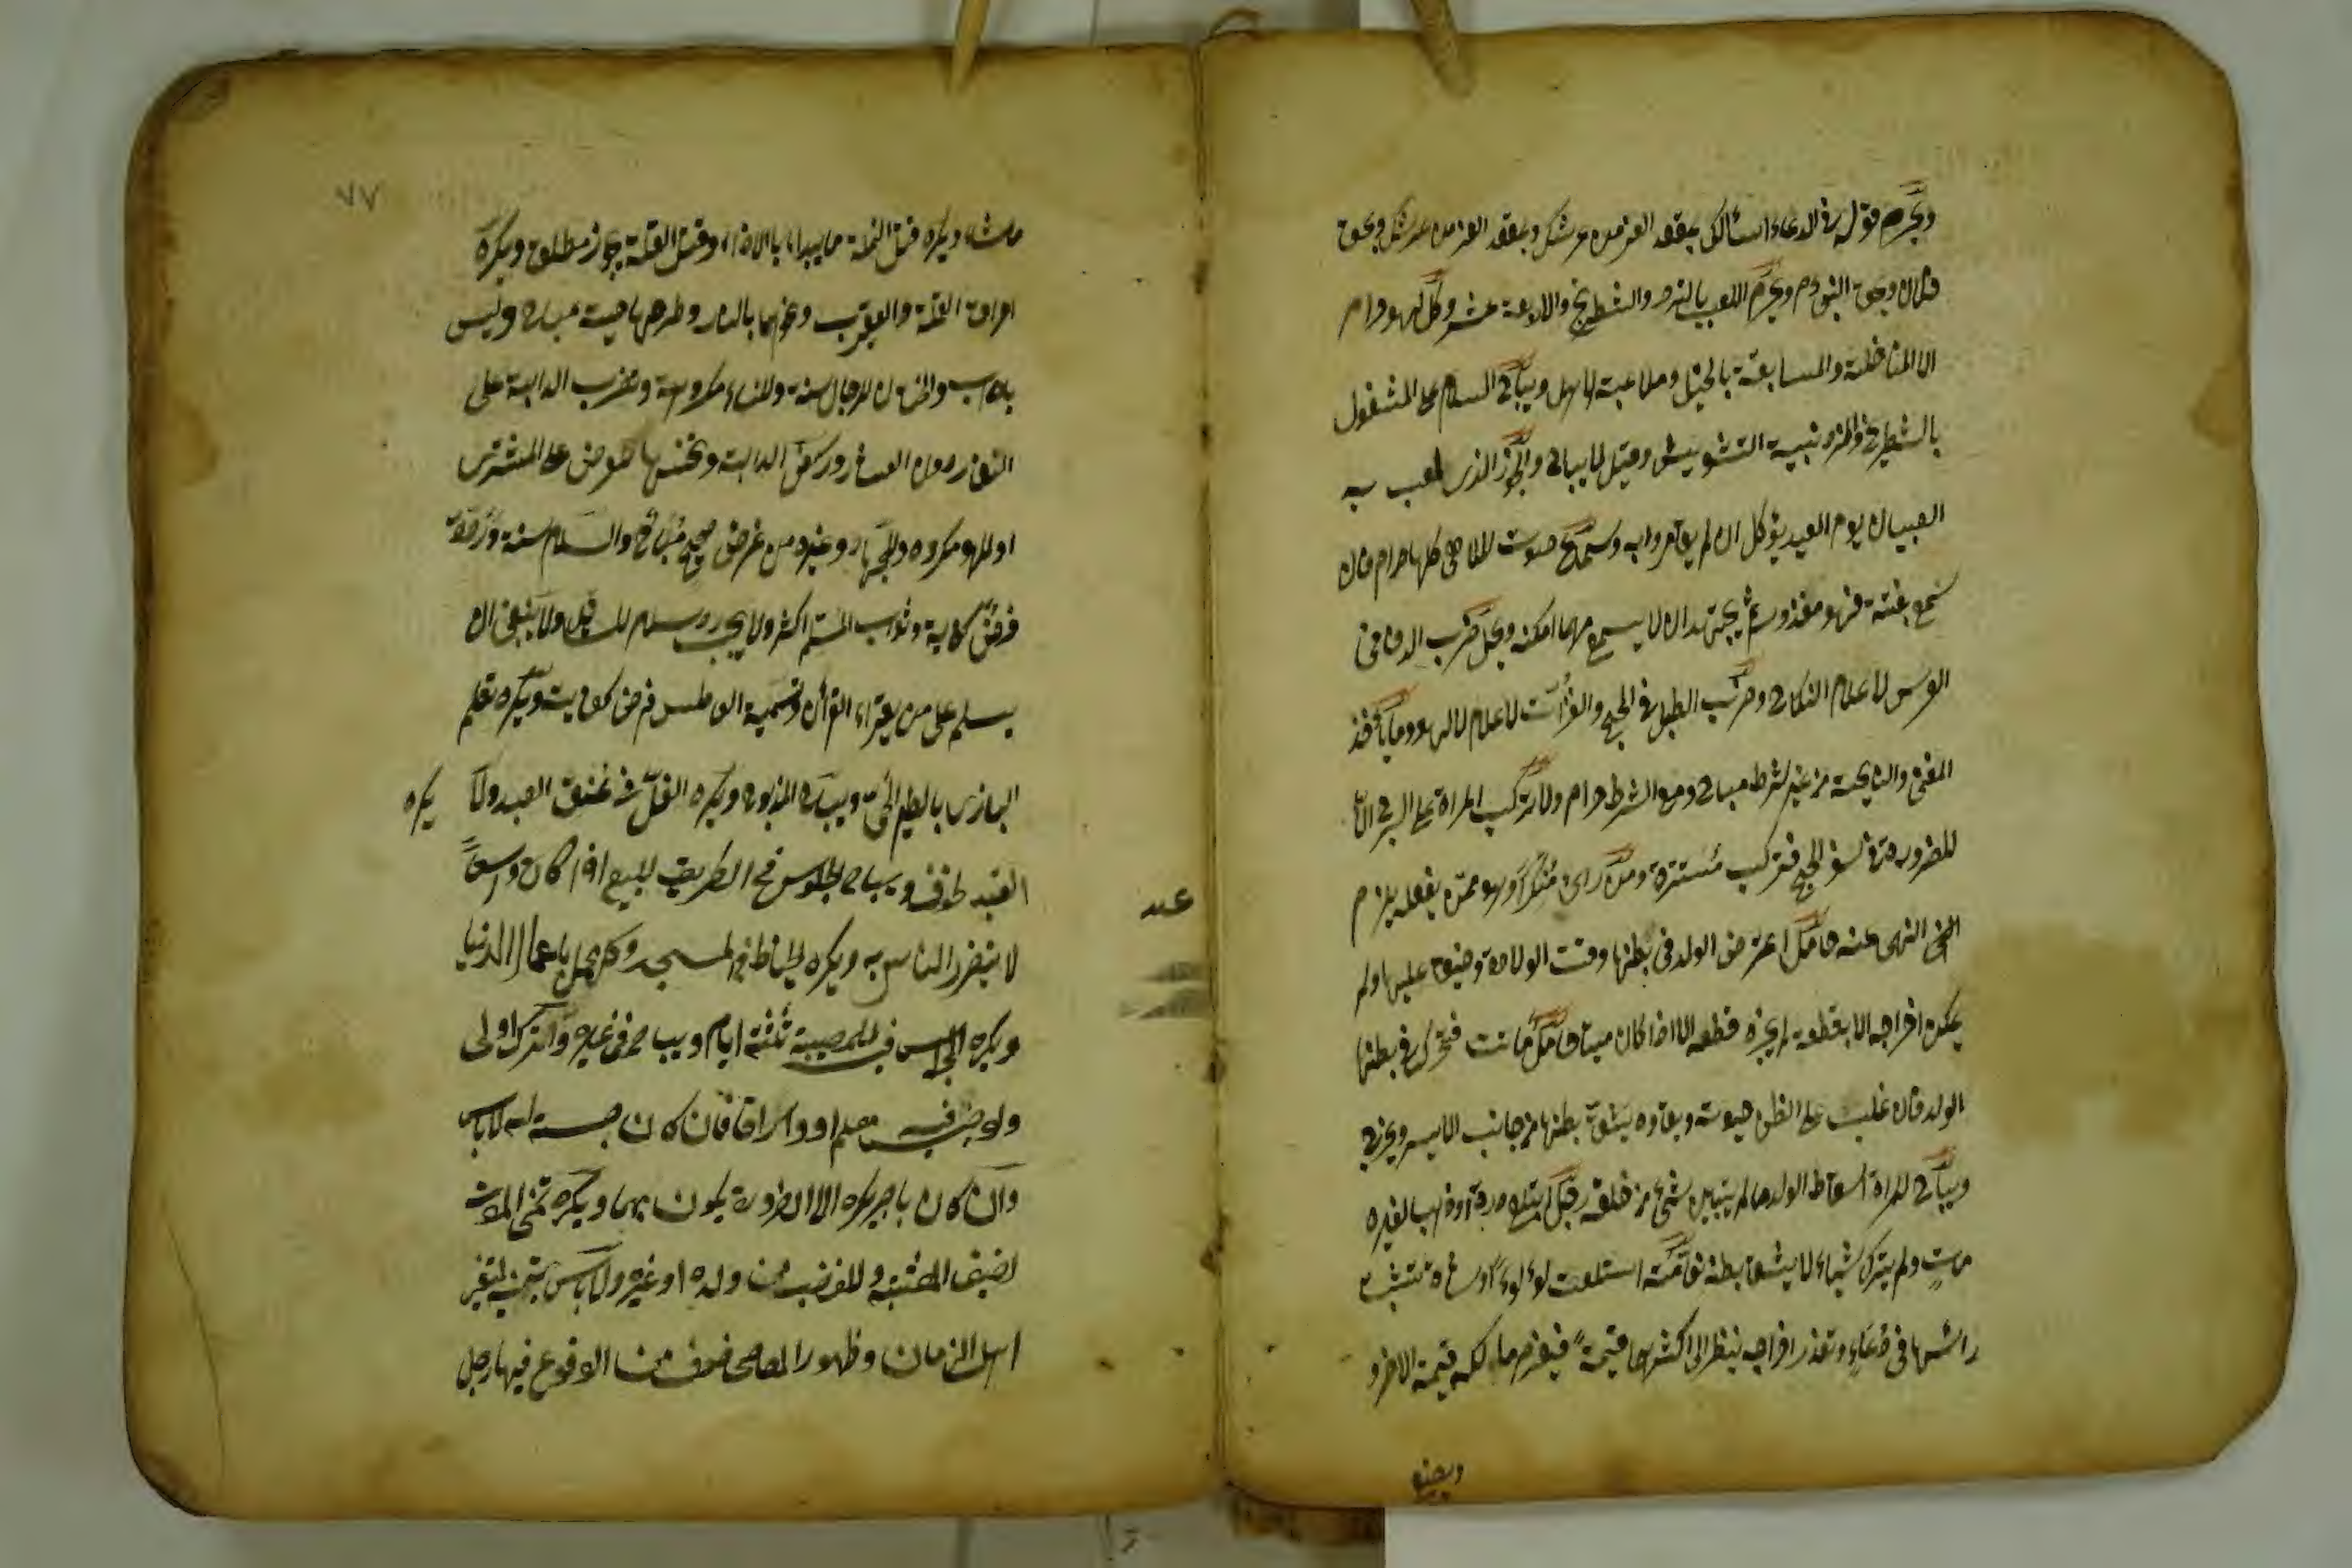 ويحرم قوله في الدعاء اسألك بمقعد العز من عرشك وبمعقد العز من عرشك وبحق
فلان وبحق النبي وم ويحرم اللعب بالنرد والشطرنج والاربعة عشر وكل لهو حرام
الا المناضلة والمسابقة بالخيل وملاعبة الاهل ويباح السلام على المشغول
بالشطرنج والنرد بنية التشويش وقيل لا يباح والجوز الذي لعب به
الصبيان يوم العيد يؤكل ان لم يقامروا به وسماع صوت الملاهي كلها حرام فان
سمع بغتة فهو معذور ثم يجتهد ان لا يسمع مهما امكنه ويحل ضرب الدف في
العرس لاعلام النكاح وضرب الطبل في الحج والغزات لاعلام لا للهو وما يأخذ
المغني والنايحة من غير شرط مباح ومع الشرط حرام ولا تركب المراة على السرج الا
للضرورة في سفر الحج فتركب مستترة ومن راى منكرا وهو ممن يفعله يلزم
النهي عنه حامل اعترض الولد في بطنها وقت الولادة وخيف عليها ولم
يمكن اخراجه الا بقطعه لم يجز قطعه الا اذا كان ميتا حامل ماتت فتحرك في بطنها
الولد فان غلب على الظن حيوته وبقاوه يشق بطنها من جانب الايسر ويخرج
ويباح للمراة اسقاط الولد ما لم يتبين شئ من خلقه رجل ابتلع درة او ذهبا لغيره
مات ولم يترك شياء لا يشق بطنه نعامة ابتلعت لؤلؤا او شاة نشبت
راسها في وعاء وتعذر اخراجه ينظر الى اكثرهما قيمة فيغرم مالكه قيمة الاخر و
ويجتنب
٧٧
ماشاء ويكره قتل النملة ما يبداء بالاذا وقتل القملة يجوز مطلق ويكره
احراق القملة والعقرب ونحوهما بالنار وطرحها حية مباح وليس
بادب والختان للرجال سنة وللنساء مكرمة وضرب الدابة على
النفار دون العثار وركض الدابة ونخسها للعرض على المشتري
او للهو مكروه وللجهاد وغيره من غرض صحيح مباح والسلام سنة ورده
فرض كفاية وثواب المسلم اكثر ولا يجب رد سلام السائل ولا ينبغي ان
يسلم على من يقراء القرأن وتشميت العاطس فرض كفايت ويكره تعليم
البازي بالطير الحي ويباح بالمذبوح ويكره الغل في عنق العبد ولا يكره
القيد خوف ويباح الجلوس في الطريق للبيع اذا كان واسعا
لا يتضرر الناس به ويكره الخياط في المسجد وكل عمل باعمال الدنيا
ويكره الجلوس فيه للمصيبة ثلثة ايام ويباح في غيره والترك اولى
ولو جلس فيه معلم او وراق فان كان حسبة له لا باس
وان كان باجر يكره الا ان ضرورة يكون بهما ويكره تمني الموت
لضيق المعيشة وللغضب من ولده او غيره ولا باس بتمنيه لتغير
اهل الزمان وظهور المعاصي خوف من الوقوع فيها رجل
عبد